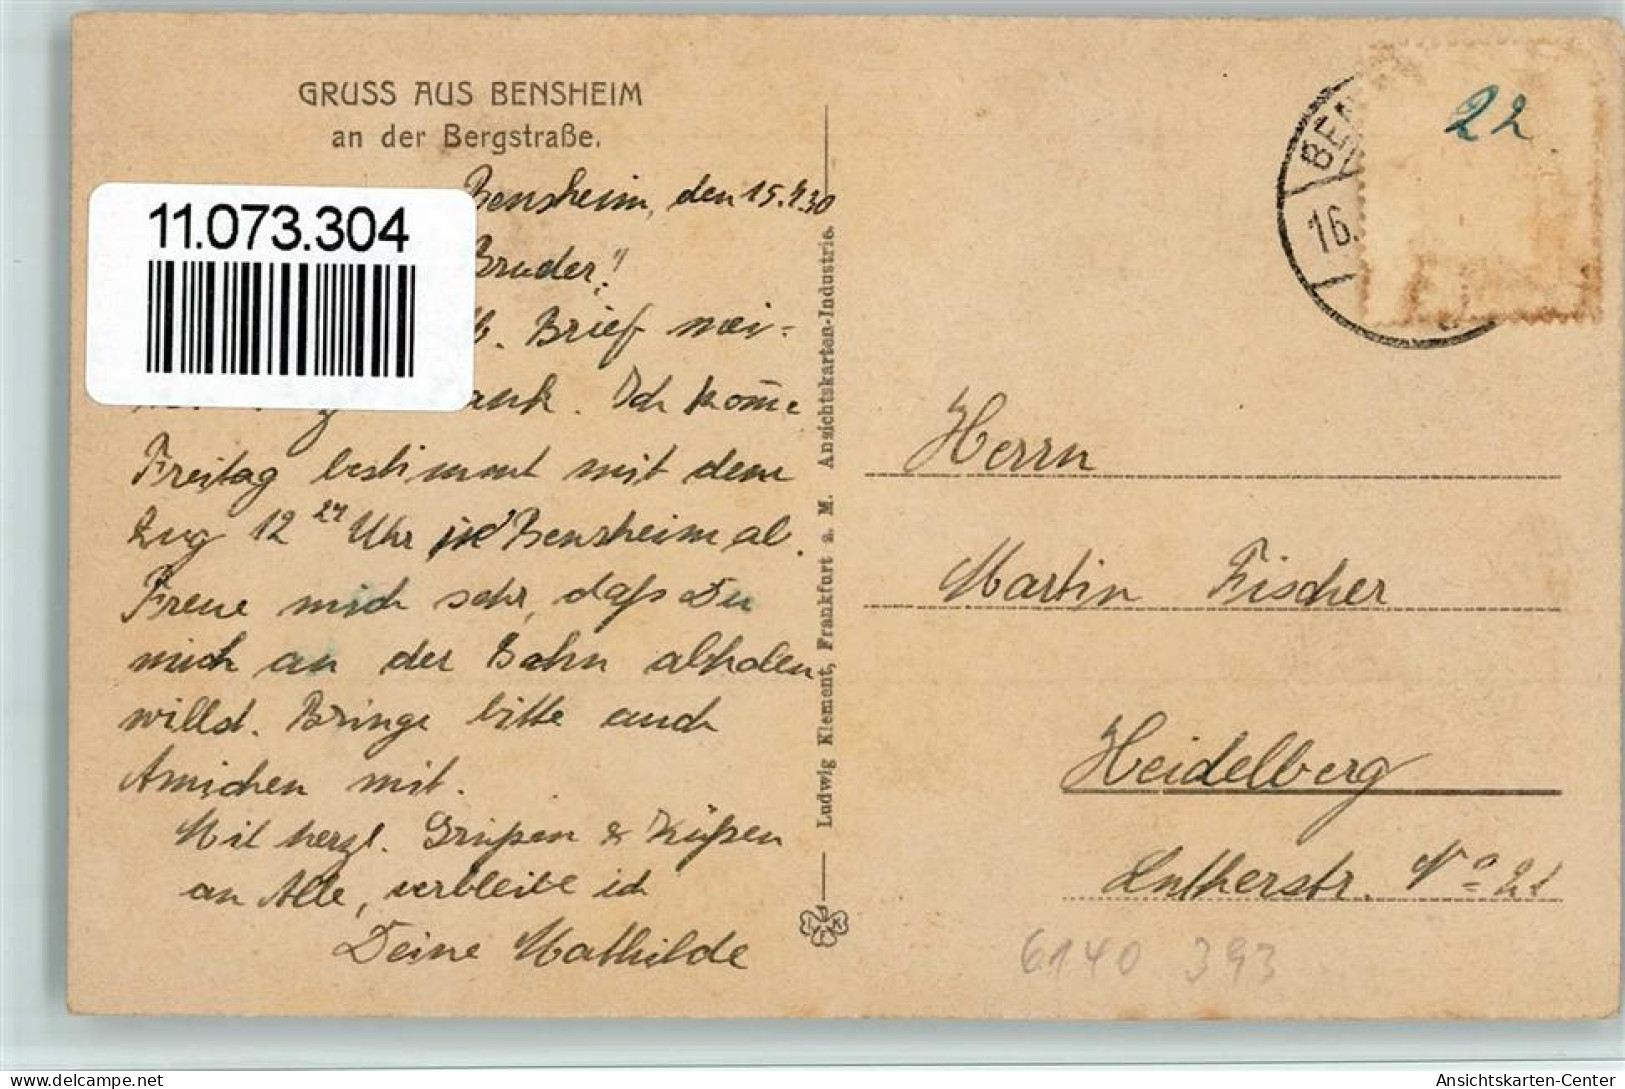 GRUSS AUS BENSHEIM
an der Bergstraße.
11.073.304
Bensheim, den 15.4.30
Bruder!
lb. Brief mei-
ank. Ich kom̄e
Freitag bestimmt mit dem
Zug 12 24 Uhr in Bensheim ab.
Freue mich sehr, daß Du
mich an der Bahn abholen
willst. Bringe bitte auch
Annchen mit.
Mit herzl. Grüßen & Küßen
an Alle, verbleibe ich
Deine Mathilde
Ludwig Klement, Frankfurt a. M. Ansichtskarten-Industrie.
BEN
16.
22
Herrn
Martin Fischer
Heidelberg
Lutherstr. No 21
6140 393
www.delcampe.net
Ansichtskarten-Center